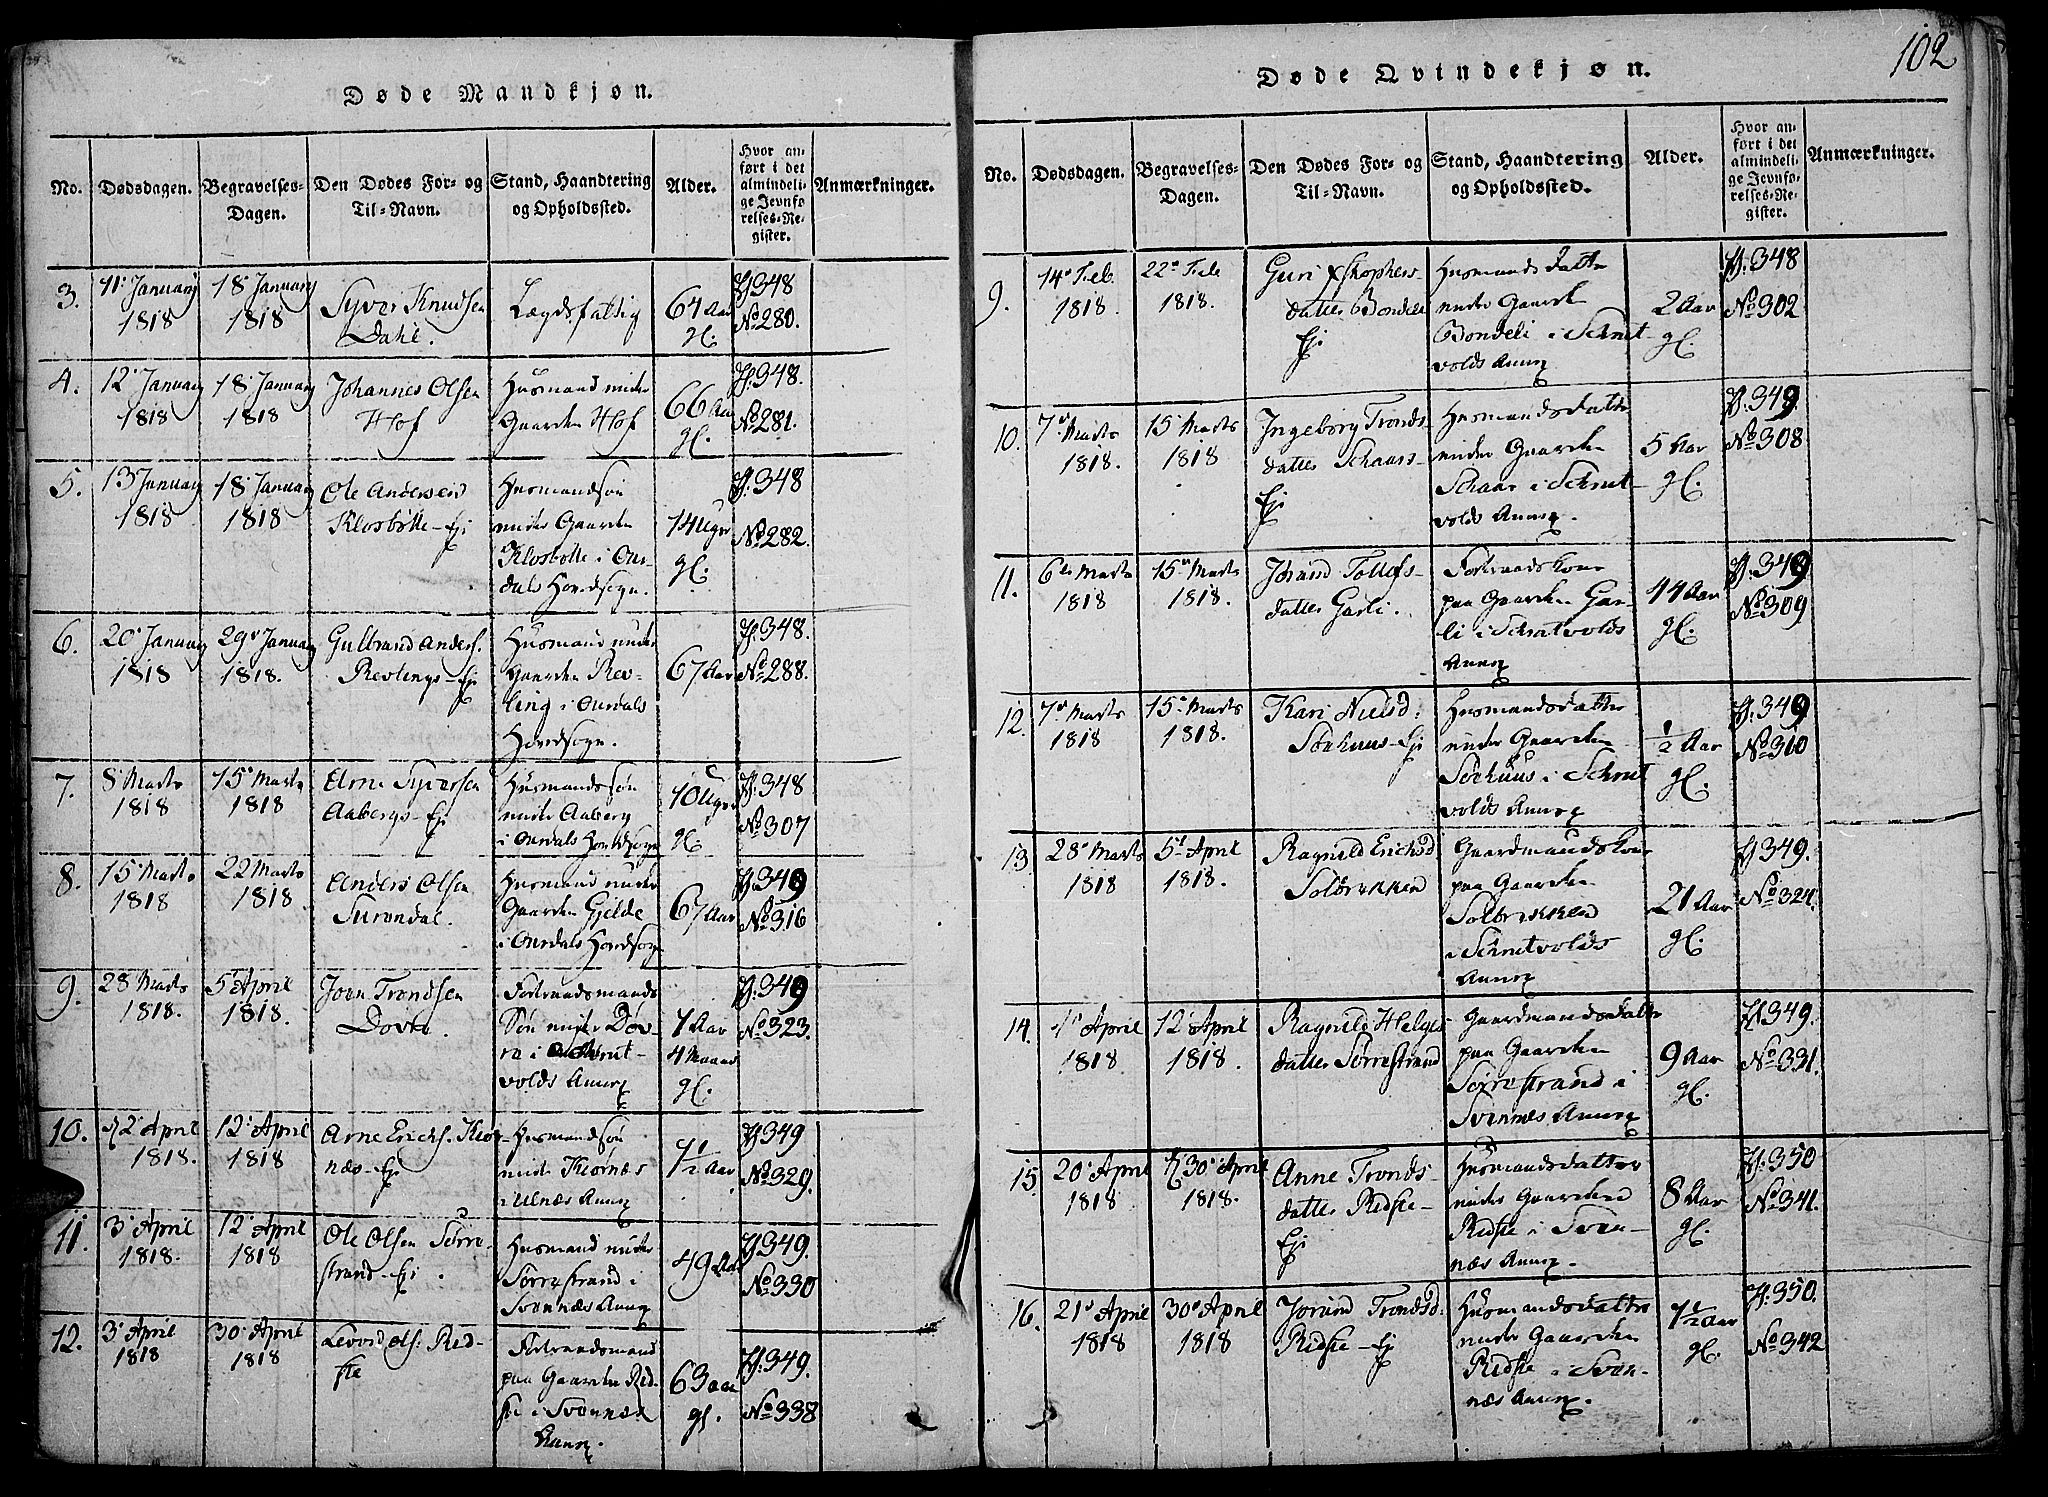 102
Døde Mandkjøn.
No.
Dødsdagen.
Begravelses-
Dagen.
Den Dødes For- og
Til-Navn.
Stand, Haandtering
og Opholdssted.
Alder.
Hvor an-
ført i det
almindeli-
ge Jevnfø-
relses-Re-
gister.
Anmærkninger.
3.
11. January
1818
18. January
1818
Syver Knudsen
Dahl.
Lægdsfattig
64 Aar
gl.
348
No 280.
4.
12. January
1818
18. January
1818
Johannes Olsen
Hof
Husmand under
Gaarden Hof
66 Aar
gl.
348.
No 281.
5.
13 January
1818
18. January
1818
Ole Andersen
Klosbølle-Ej
Husmandssøn
under Gaarden
Klosbølle i Our-
dals Hovedsogn.
14 Uger
gl.
348
No 282.
6.
20. January
1818
29. January
1818.
Gulbrand Anders.
Revlings-Ej
Husmand under
Gaarden Rev-
ling i Ourdals
Hovedsogn.
67 Aar
348.
No 288.
7.
8. Marts
1818
15. Marts
1818
Arne Syversen
Aabergs-Ej
Husmandssøn
under Aaberg
i Ourdals Hovedsogn
10 Uger
gl
348
No 307
8.
15. Marts
1818
22 Marts
1818
Anders Olsen
Surøndal.
Husmand under
Gaarden Gjelde
i Ourdals Hovedsogn
67 Aar
349
No 316
9.
28 Marts
1818.
5. April
1818.
Joen Trondsen
Dovre
Forlraadsmands
Søn under Dov-
re i Skrut-
volds Annex
1 Aar
4 Maaned
gl.
349
No 323.
10.
2. April
1818.
12. April
1818
Arne Erichs. Kiør-
næs-Ej
Husmandssøn
under Kiørnæs
i Ulnæs Annex
1½ Aar
349
No 329.
11.
3. April
1818.
12. April
1818
Ole Olsen Sørre-
strand-Ej.
Husmand under
Sørrestrand i
Svennæs Annex
49 Aar
349.
No 330
12.
3. April
1818
30. April
1818
Levord Ols. Rid-
ste
Forlraadsmand
paa Gaarden Rid-
ste i Svennæs
Annex.
63 aar
gl.
349.
No 338
Døde Qvindekjøn.
No.
Dødsdagen.
Begravelses-
Dagen.
Den Dødes For- og
Til-Navn.
Stand, Haandtering
og Opholdssted.
Alder.
Hvor an-
ført i det
almindeli-
ge Jevnfø-
relses-Re-
gister.
Anmærkninger.
9.
14. Feb.
1818.
22. Feb
1818.
Guri
datter Bondeli
Ej
Husmands datter
under Gaarden
Bondeli i Schrut-
volds Annex
2 Aar
gl.
348
No 302
10.
7. Marts
1818.
15 Marts
1818
Ingeborg Tronds-
datter Schaars-
Ej
Husmandsdatter
under Gaarden
Schaar i Schrut-
volds Annex.
5 Aar
gl.
349.
No 308
11.
6te Marts
1818
15de Marts
1818.
Jorand Tollefs-
datter Garli.
Forlraadskone
paa Gaarden Gar-
li i Schrutvolds
Annex
44 Aar
gl.
349
No 309
12.
7. Marts
1818
15. Marts
1818.
Kari Nielsd:
Sørhuus-Ej
Husmandsdatter
under Gaarden
Sørhuus i Schrut
volds Annex
½ Aar
gl.
349
No 310
13.
28. Marts
1818
5t April
1818.
Ragnild Erichsd
Solbrekken
Gaardmandskone
paa Gaarden
Solbrekken
i Schrutvolds
Annex
21 Aar
gl.
349.
No 324.
14.
4. April
1818.
12. April
1818.
Ragnild Helges-
datter Sørrestrand
Gaardmandsdatter
paa Gaarden
Sørrestrand i
Svennæs Annex
9 Aar
gl.
349.
No 331.
15.
20. April
1818
30. April
1818.
Anne Tronds-
datter Ridste-
Ej
Husmandsdatter
under Gaarden
Ridste i Sven-
næs Annex.
8 Aar
gl.
350
No 341.
16.
21. April
1818
30. April
1818
Jorand Trondsd.
Ridste-Ej
Husmandsdatter
under Gaarden
Ridste i Sven-
næs Annex.
1½ Aar
gl.
350.
No 342